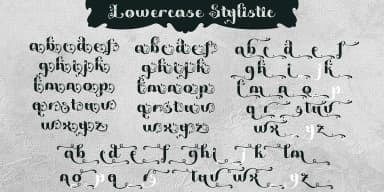 Lowercase Stylistic
abcdef
ghijk
lmnop
qrstuv
wxyz
abcdef
ghijk
lmnop
qrstuv
wxyz
abcdef
ghijk
lmnop
qrstuv
wxyz
abcdefghijklm
nopqrstuvwxyz